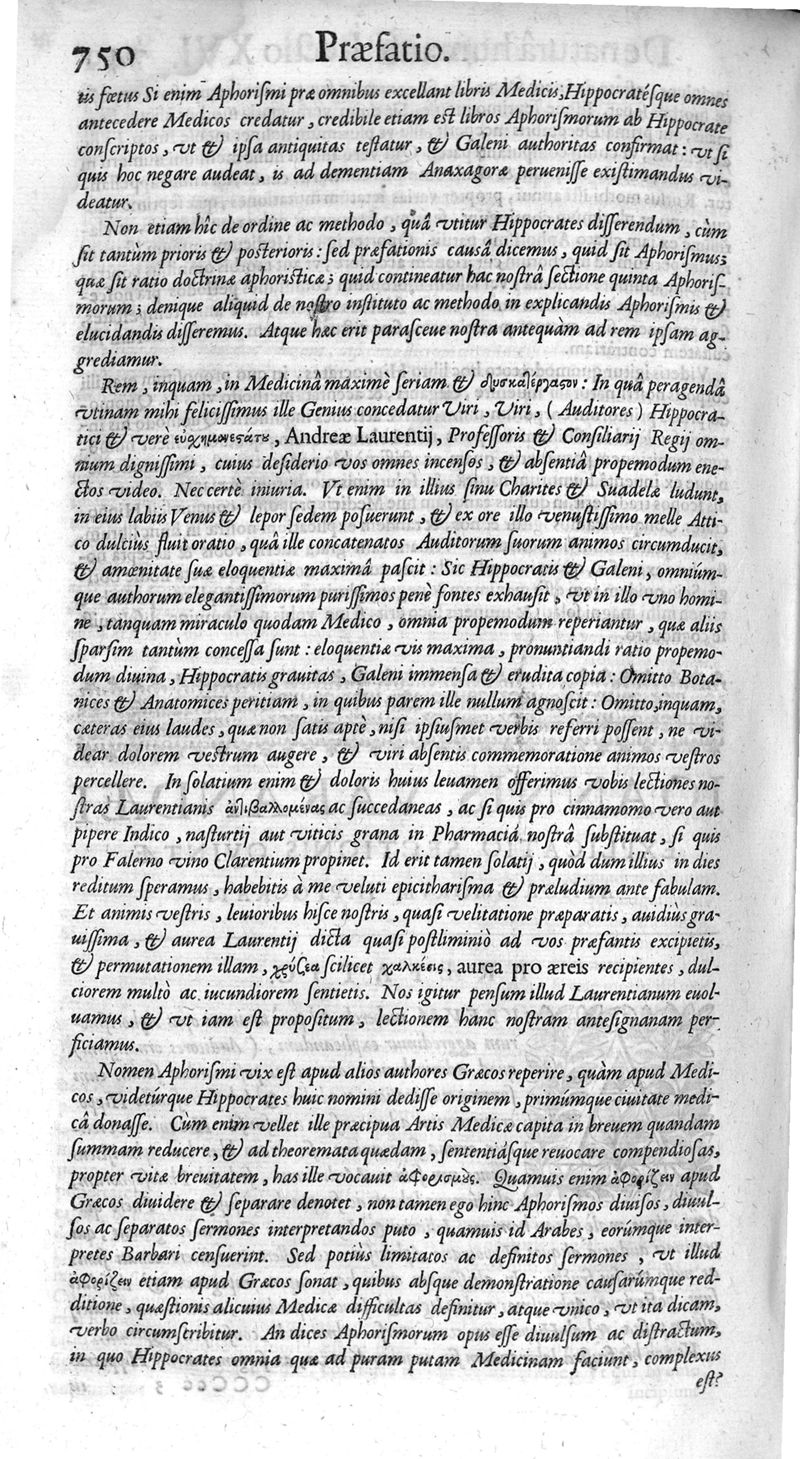 750 Præfatio.
tis fœtus Si enim Aphoriſmi præ omnibus excellant libris Medicis, Hippocratéſque omnes
antecedere Medicos credatur, credibile etiam eſt libros Aphoriſmorum ab Hippocrate
conſcriptos, vt & ipſa antiquitas teſtatur, & Galeni authoritas confirmat: vt ſi
quis hoc negare audeat, is ad dementiam Anaxagoræ perueniſſe exiſtimandus vi-
deatur.
Non etiam hîc de ordine ac methodo, quâ vtitur Hippocrates diſſerendum, cùm
ſit tantùm prioris & poſterioris: ſed præfationis cauſâ dicemus, quid ſit Aphoriſmus;
quæ ſit ratio doctrinæ aphoriſticæ; quid contineatur hac noſtrâ ſectione quinta Aphoriſ-
morum; denique aliquid de noſtro inſtituto ac methodo in explicandis Aphoriſmis &
elucidandis diſſeremus. Atque hæc erit paraſceue noſtra antequàm ad rem ipſam ag-
grediamur.
Rem, inquam, in Medicinâ maximè ſeriam & δυσκατέργαστον: In quâ peragendâ
vtinam mihi feliciſſimus ille Genius concedatur Viri, Viri, (Auditores) Hippocra-
tici & verè εὐσχημονεστάτου, Andreæ Laurentij, Profeſſoris & Conſiliarij Regij om-
nium digniſſimi, cuius deſiderio vos omnes incenſos, & abſentiâ propemodum ene-
ctos video. Nec certè iniuria. Vt enim in illius ſinu Charites & Suadelæ ludunt,
in eius labiis Venus & lepor ſedem poſuerunt, & ex ore illo venuſtiſſimo melle Atti-
co dulciùs fluit oratio, quâ ille concatenatos Auditorum ſuorum animos circumducit,
& amœnitate ſuæ eloquentiæ maximâ paſcit: Sic Hippocratis & Galeni, omniúm-
que authorum elegantiſſimorum puriſſimos penè fontes exhauſit, vt in illo vno homi-
ne, tanquam miraculo quodam Medico, omnia propemodum reperiantur, quæ aliis
ſparſim tantùm conceſſa ſunt: eloquentiæ vis maxima, pronuntiandi ratio propemo-
dum diuina, Hippocratis grauitas, Galeni immenſa & erudita copia: Omitto Bota-
nices & Anatomices peritiam, in quibus parem ille nullum agnoſcit: Omitto, inquam,
cæteras eius laudes, quæ non ſatis aptè, niſi ipſiuſmet verbis referri poſſent, ne vi-
dear dolorem veſtrum augere, & viri abſentis commemoratione animos veſtros
percellere. In ſolatium enim & doloris huius leuamen offerimus vobis lectiones no-
ſtras Laurentianis ἀντιβαλλομένας ac ſuccedaneas, ac ſi quis pro cinnamomo vero aut
pipere Indico, naſturtij aut viticis grana in Pharmaciâ noſtrâ ſubſtituat, ſi quis
pro Falerno vino Clarentium propinet. Id erit tamen ſolatij, quòd dum illius in dies
reditum ſperamus, habebitis à me veluti epicithariſma & præludium ante fabulam.
Et animis veſtris, leuioribus hiſce noſtris, quaſi velitatione præparatis, auidiùs gra-
uiſſima, & aurea Laurentij dicta quaſi poſtliminiò ad vos præfantis excipietis,
& permutationem illam, χρύσεα ſcilicet χαλκείοις, aurea pro æreis recipientes, dul-
ciorem multò ac iucundiorem ſentietis. Nos igitur penſum illud Laurentianum euol-
uamus, & vt iam eſt propoſitum, lectionem hanc noſtram anteſignanam per-
ficiamus.
Nomen Aphoriſmi vix eſt apud alios authores Græcos reperire, quàm apud Medi-
cos, videtúrque Hippocrates huic nomini dediſſe originem, primúmque ciuitate medi-
câ donaſſe. Cùm enim vellet ille præcipua Artis Medicæ capita in breuem quandam
ſummam reducere, & ad theoremata quædam, ſententiáſque reuocare compendioſas,
propter vitæ breuitatem, has ille vocauit ἀφορισμὸς. Quamuis enim ἀφορίζειν apud
Græcos diuidere & ſeparare denotet, non tamen ego hinc Aphoriſmos diuiſos, diuul-
ſos ac ſeparatos ſermones interpretandos puto, quamuis id Arabes, eorúmque inter-
pretes Barbari cenſuerint. Sed potiùs limitatos ac definitos ſermones, vt illud
ἀφορίζειν etiam apud Græcos ſonat, quibus abſque demonſtratione cauſarúmque red-
ditione, quæſtionis alicuius Medicæ difficultas definitur, atque vnico, vt ita dicam,
verbo circumſcribitur. An dices Aphoriſmorum opus eſſe diuulſum ac diſtractum,
in quo Hippocrates omnia quæ ad puram putam Medicinam faciunt, complexus
eſt?